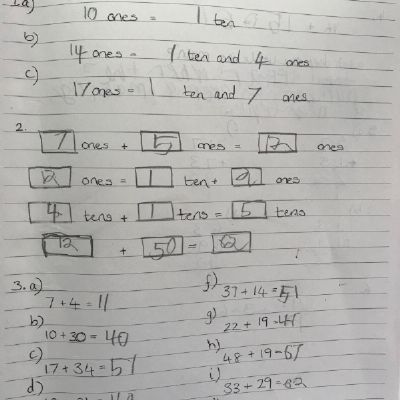 1.a) 10 ones = 1 ten
b) 14 ones = 1 ten and 4 ones
c) 17 ones = 1 ten and 7 ones
2.
7 ones + 5 ones = 12 ones
12 ones = 1 ten + 2 ones
4 tens + 1 tens = 5 tens
12 + 50 = 62
3. a) 7 + 4 = 11
b) 10 + 30 = 40
c) 17 + 34 = 51
d)
f) 37 + 14 = 51
g) 22 + 19 = 41
h) 48 + 19 = 67
i) 33 + 29 = 62